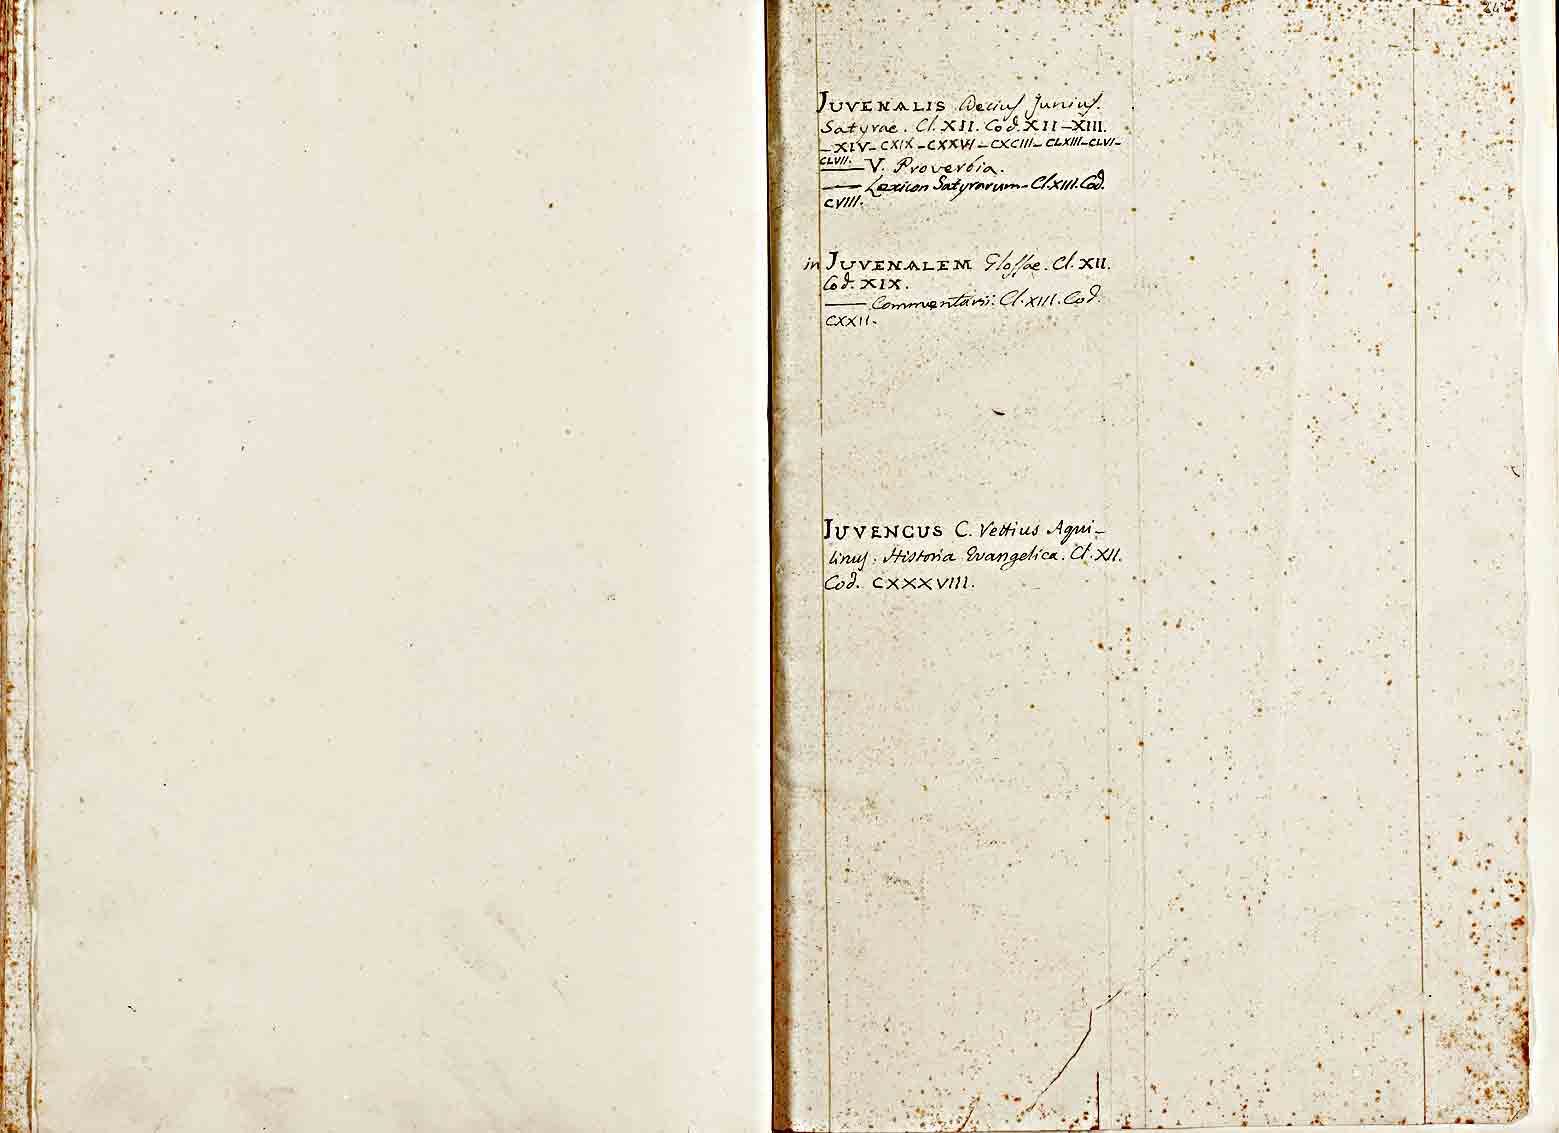 JUVENALIS Decius Junius.
Satyrae. Cl. XII. Cod. XII–XIII.
– XIV– CXIX –CXXVI– CXCIII– CLXIII–CLVI–
CLVII.
—— V. Proverbia.
—— Lexicon Satyrarum– Cl. XIII. Cod.
CVIII.
in JUVENALEM Glossae. Cl. XII.
Cod. XIX.
—— Commentarii. Cl. XIII. Cod.
CXXII.
JUVENCUS C. Vettius Aqui–
linus. Historia Evangelica. Cl. XII.
Cod. CXXXVIII.